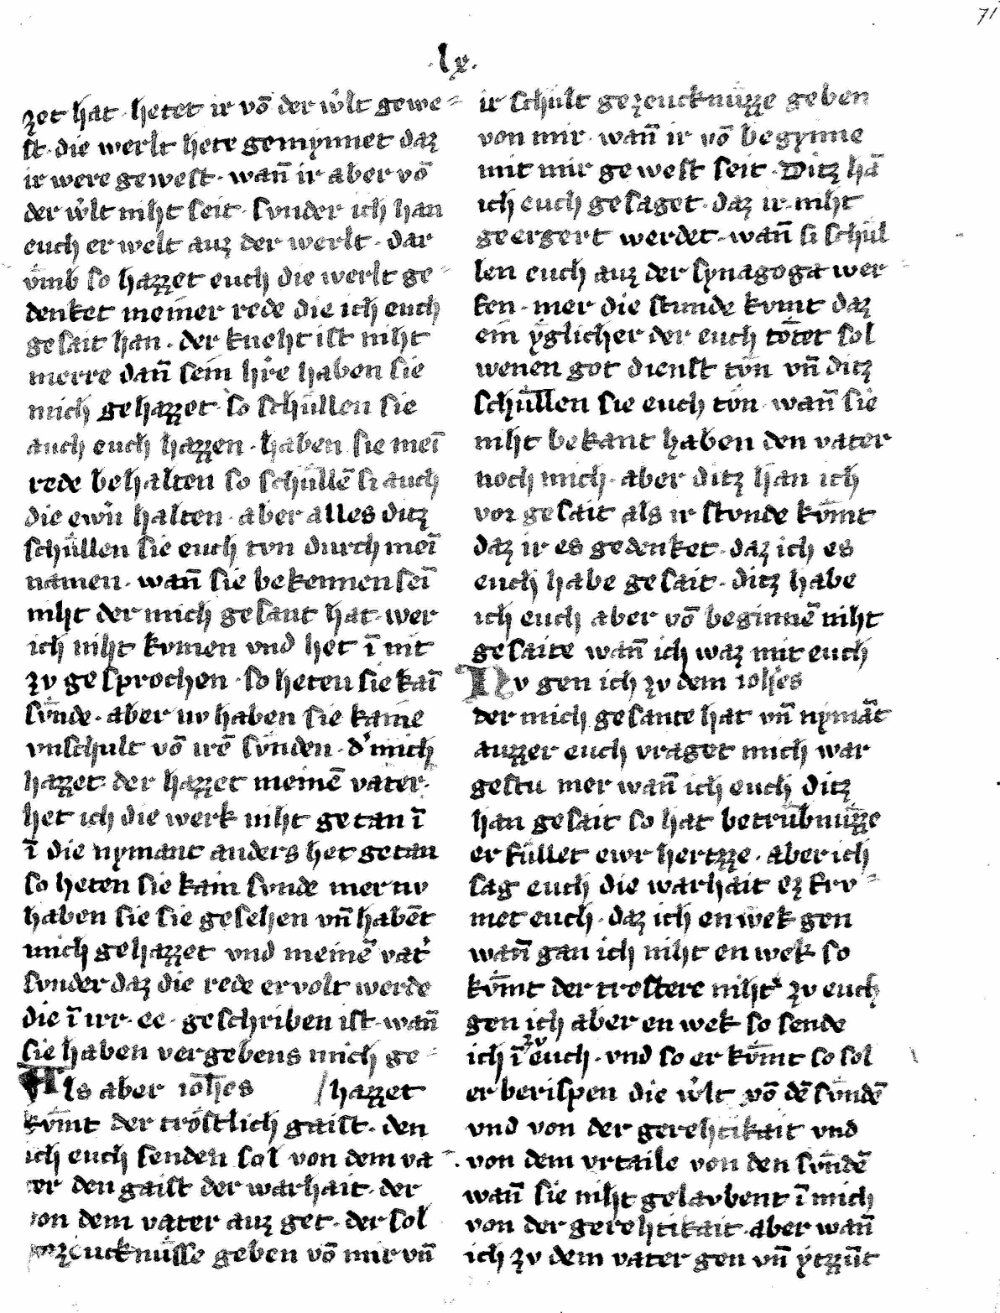 71
.lx.
zet hat · hetet ir võ der w̉lt gewe=
st · die werlt hete gemynnet daz
ir were gewest · wañ ir aber võ
der w̉lt niht seit · sunder ich han
euch er welt auz der werlt · dar
v̄mb so hazzet euch die werlt ge=
denket meiner rede die ich euch
gesait han · der kneht ist niht
merre dañ sein hr̉e haben sie
mich gehazzet · so schüllen sie
auch euch hazzen · haben sie meī
rede behalten so schüllē si auch
die ewrı̉ halten · aber alles ditz
schüllen sie euch tvn durch meī
namen · wañ sie bekennen seī
niht der mich gesant hat · wer
ich niht kvmen vnd het ī niht
zv gesprochen · so heten sie kaī
sv̄nde · aber nv haben sie kaine
vnschult võ irē sv̄nden · d' mich
hazzet · der hazzet meinē vater ·
het ich die werk niht getan ī
ī die nymant anders het getan
so heten sie kain svnde mer nv
haben sie sie gesehen vñ habēt
mich gehazzet vnd meinē vat'
svnder daz die rede ervolt werde
die ī irr · ee · geschriben ist · wañ
sie haben vergebens mich ge=
Als aber ioh̄es / hazzet
kv̄mt der tröstlich gaist · den
ich euch senden sol von dem va
ter den gaist der warhait · der
von dem vater auz get · der sol
gezeucknüsse geben võ mir vñ
ir schült gezeucknüzze geben
von mir · wañ ir võ begynne
mit mir gewest seit · Ditz hā
ich euch gesaget · daz ir niht
geergert werdet · wañ si schül
len euch auz der synagoga wer
fen · mer die stunde kvmt daz
ein yglicher der euch tötet sol
wenen got dienst tv̄n vñ ditz
schüllen sie euch tön · wañ sie
niht bekant haben den vater
noch mich · aber ditz han ich
vor gesait als ir stvnde kv̄mt
daz ir es gedenket · daz ich es
euch habe gesait · ditz habe
ich euch aber võ beginnē niht
gesaite wañ ich waz mit euch
Nv gen ich zv dem ioh̄es
der mich gesante hat vñ nymāt
auzzer euch vraget mich war
gestu mer wañ ich euch ditz
han gesait so hat betrübnüzze
er füllet ewr hertzze · aber ich
sag euch die warhait ez frv=
met euch · daz ich enwek gen
wañ gan ich niht enwek so
kv̄mt der trostere niht zv euch
gen ich aber enwek so sende
ich ī zv euch · vnd so er kv̄mt so sol
er berispen die w̉lt võ dē sv̄ndē
vnd von der gerehtikait vnd
von dem vrtaile von den sv̄ndē
wañ sie niht gelavbent ī mich
von der gerehtikait · aber wañ
ich zv dem vater gen vñ ytzzūt